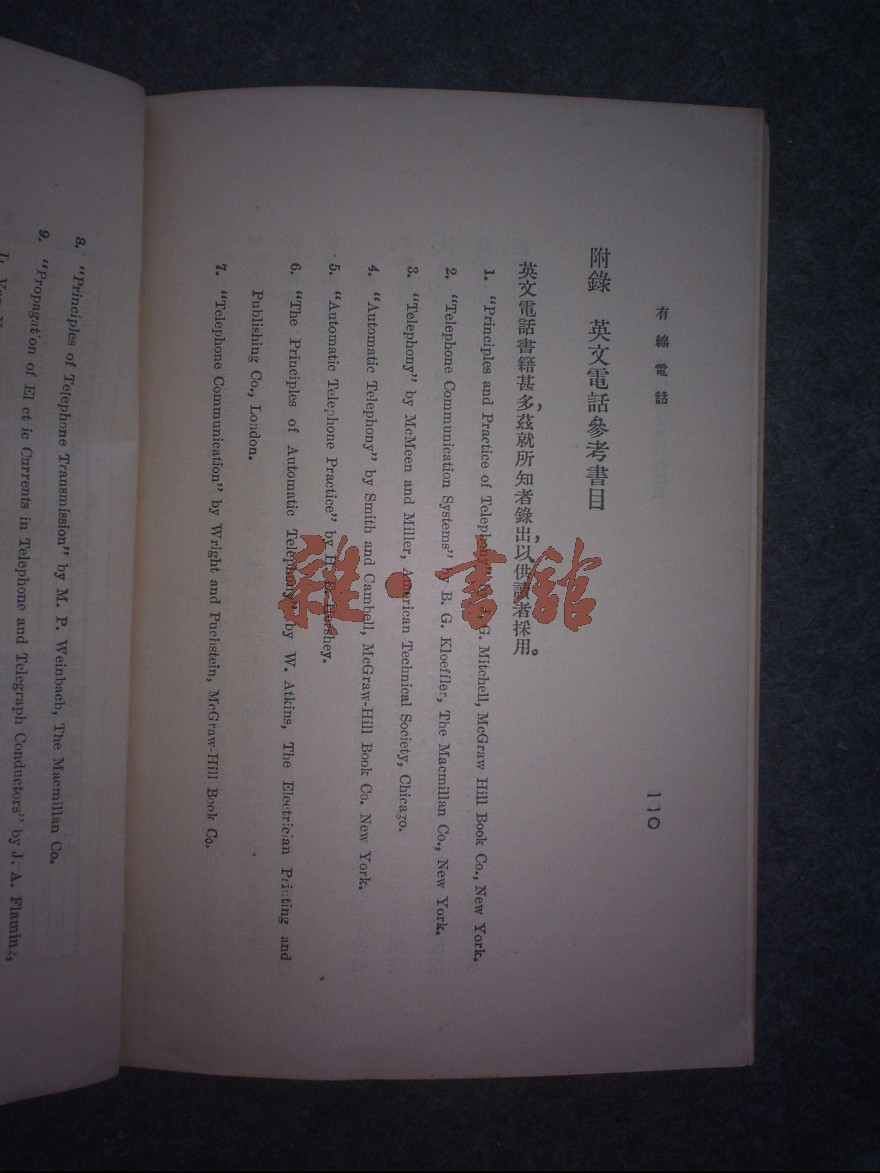 有線電話
一一〇
附錄 英文電話參考書目
英文電話書籍甚多,茲就所知者錄出,以供讀者採用。
1. "Principles and Practice of Telephony" G. Mitchell, McGraw Hill Book Co., New York.
2. "Telephone Communication Systems" by B. G. Kloeffler, The Macmillan Co., New York.
3. "Telephony" by McMeen and Miller, American Technical Society, Chicago.
4. "Automatic Telephony" by Smith and Cambell, McGraw-Hill Book Co. New York.
5. "Automatic Telephone Practice" by
6. "The Principles of Automatic Telephony" by W. Atkins, The Electrician Printing and
Publishing Co., London.
7. "Telephone Communication" by Wright and Puchstein, McGraw-Hill Book Co.
8. "Principles of Telephone Transmission" by M. P. Weinbach, The Macmillan Co.
9. "Propagation of El ct ic Currents in Telephone and Telegraph Conductors" by J. A. Flaming,
雜·書館